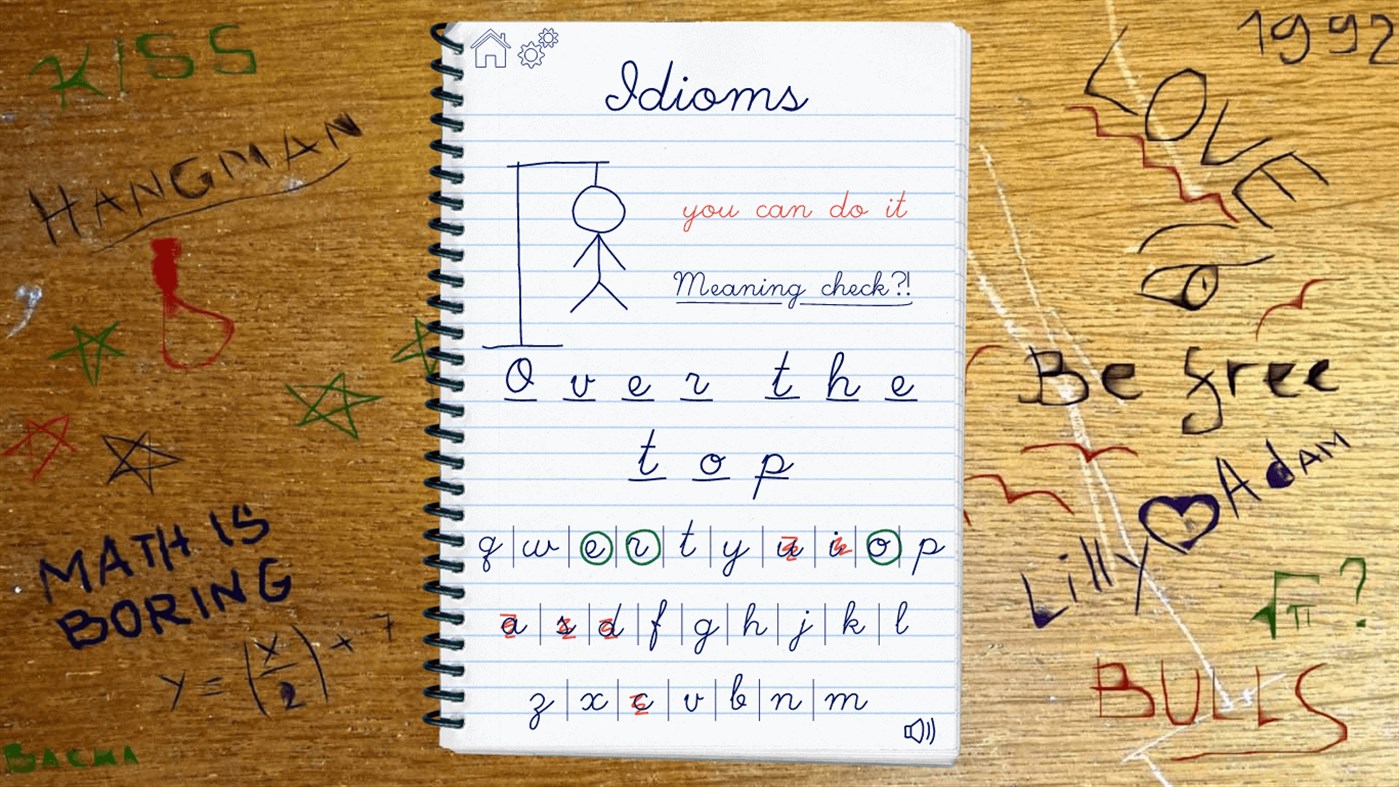 KISS
HANGMAN
MATH IS
BORING
y = (x/2) + 7
BACMA
Idioms
you can do it
Meaning check?!
Over the
top
q|w|e|r|t|y|u|i|o|p
a|s|d|f|g|h|j|k|l
z|x|c|v|b|n|m
1992
LOVE
Be free
Lilly ♥ Adam
√π ?
BULLS